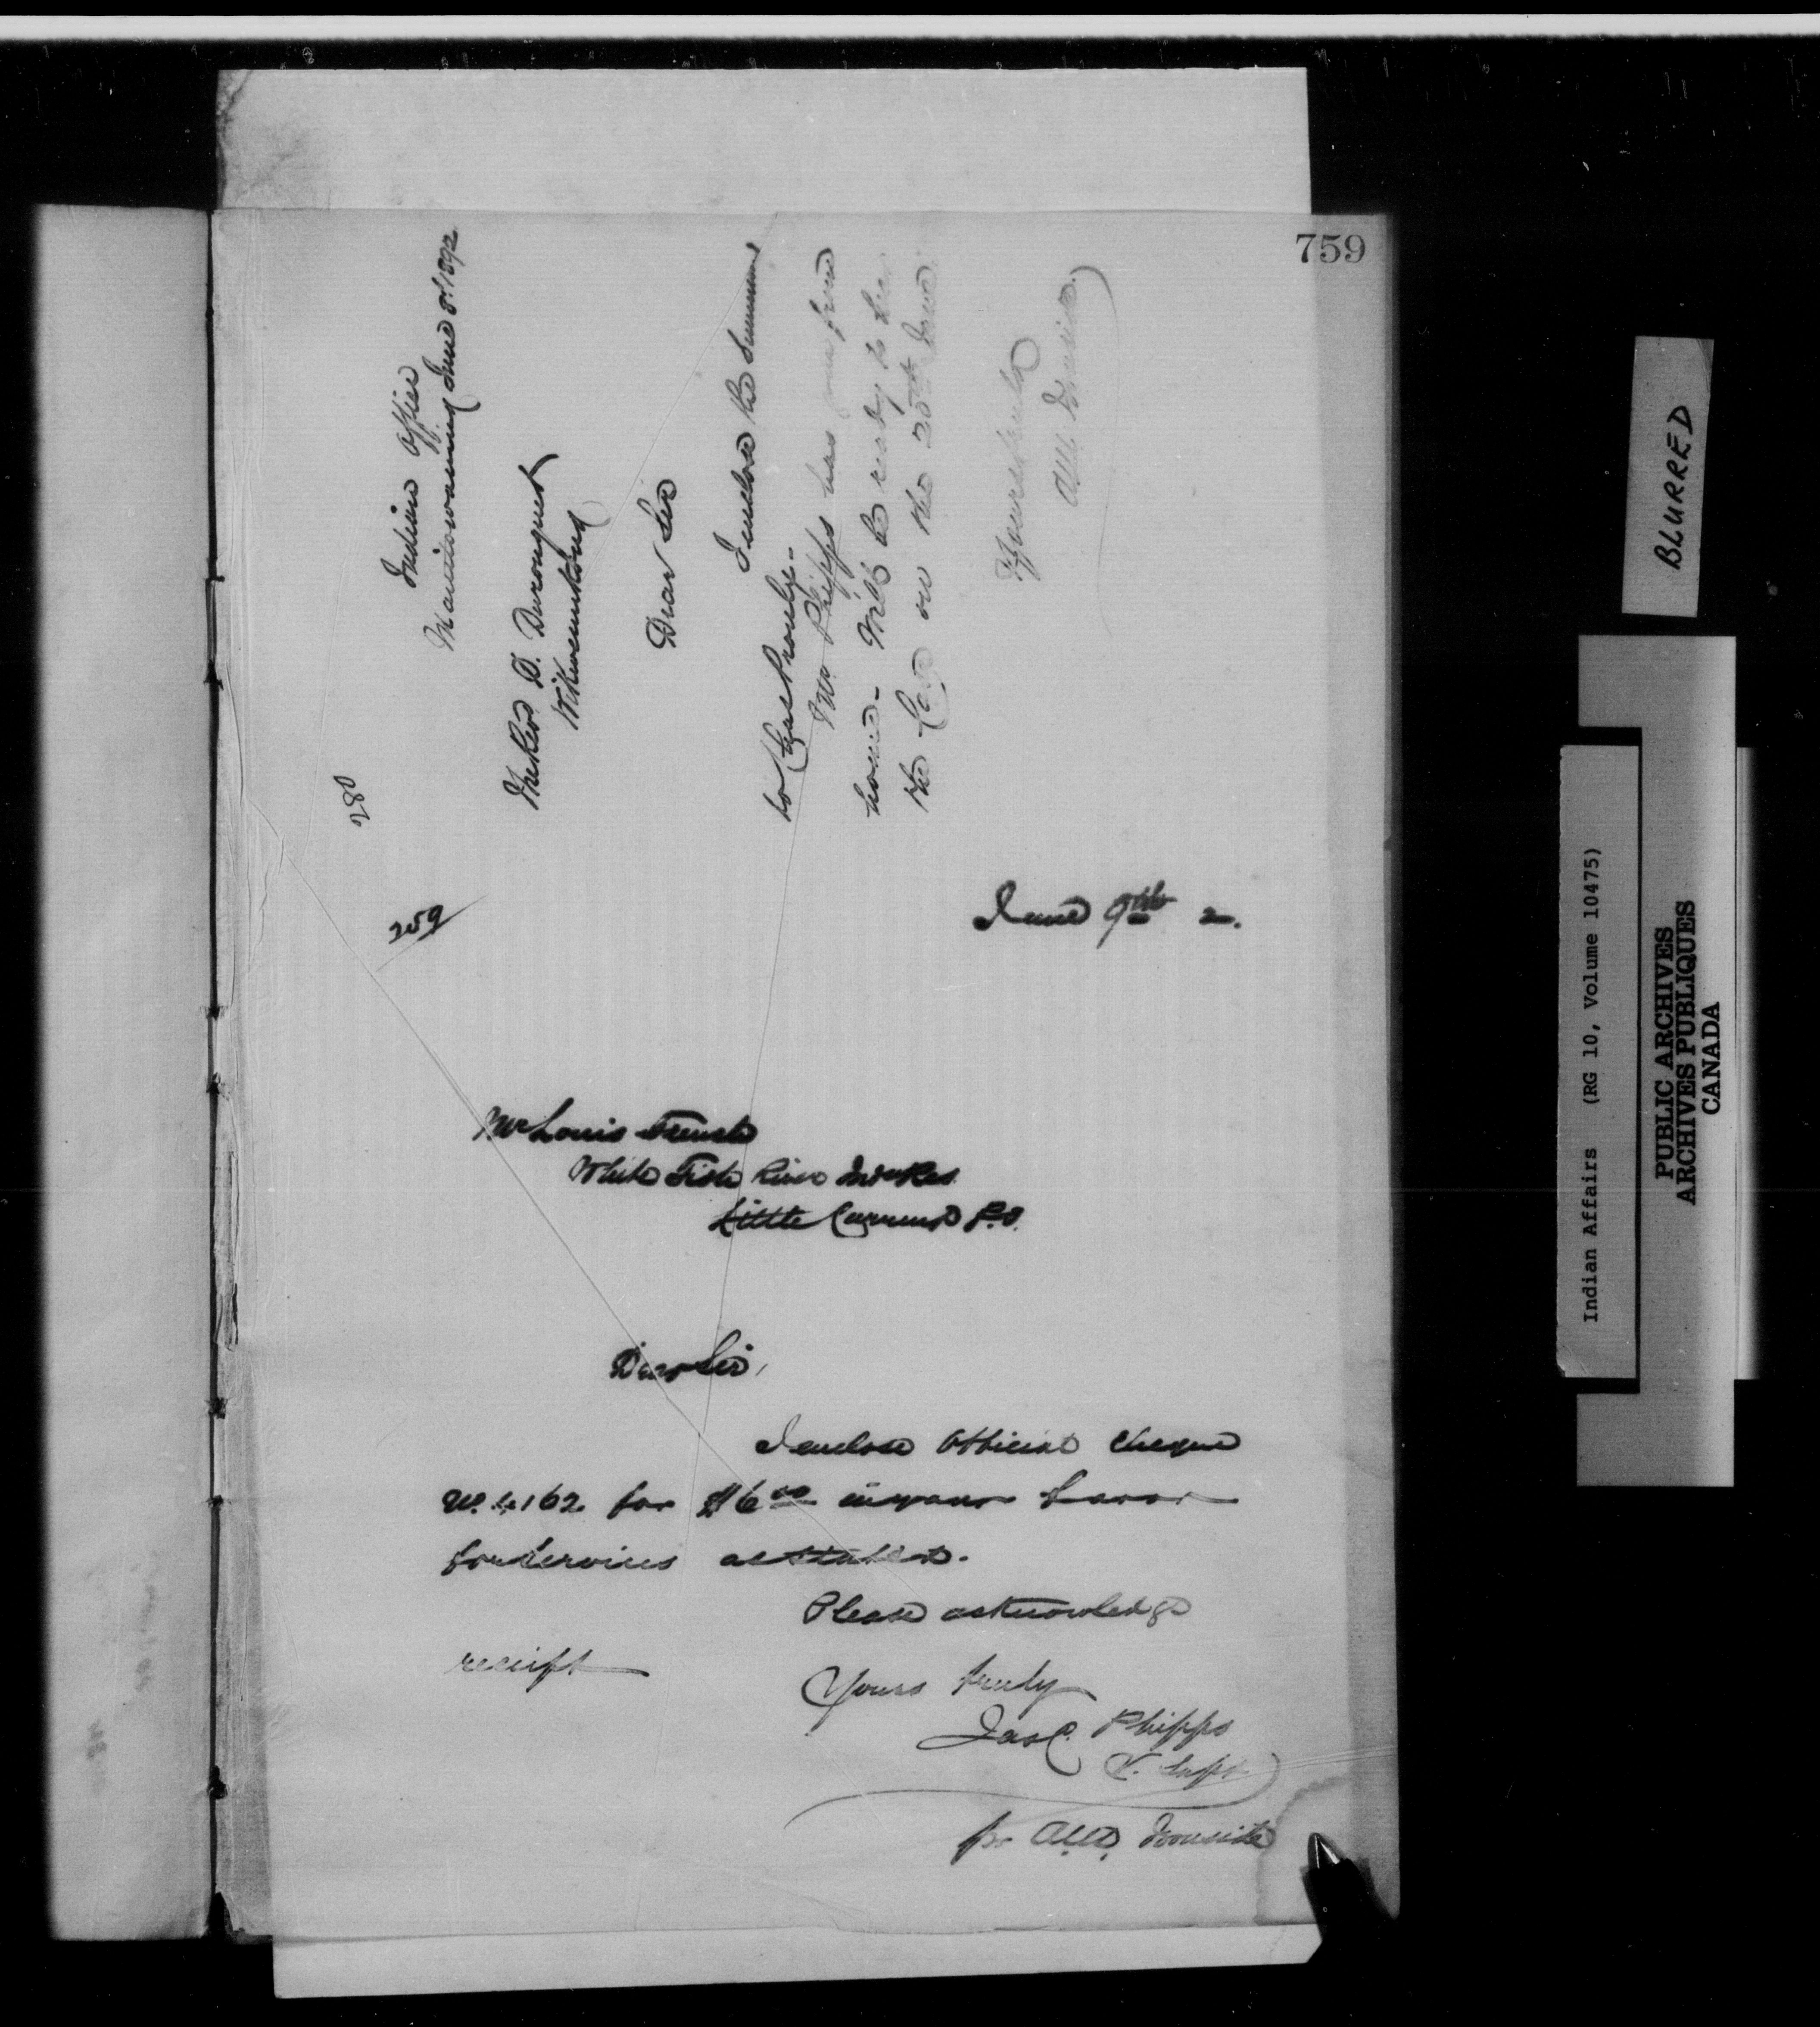 759
280
Indian Office
Manitowaning June 8th/1892
The Rev D. Duronquet
Wikwemikong
Dear Sir
I enclose the Summons
to
Mr Phipps has gone from
home. Will be ready to
the Case on the 20th June
Yours truly
259
June 9th 2.
Mr Louis French
White Fish River Ind Res
Little Current P.O.
Dear Sir,
I enclose Official Cheque
No. 4162 for $6 00 in your favor
for Services as stated.
Please acknowledge
receipt
Yours truly
Jas C. Phipps
V. Supt
pr Ironside
BLURRED
Indian Affairs (RG 10, Volume 10475)
PUBLIC ARCHIVES
ARCHIVES PUBLIQUES
CANADA